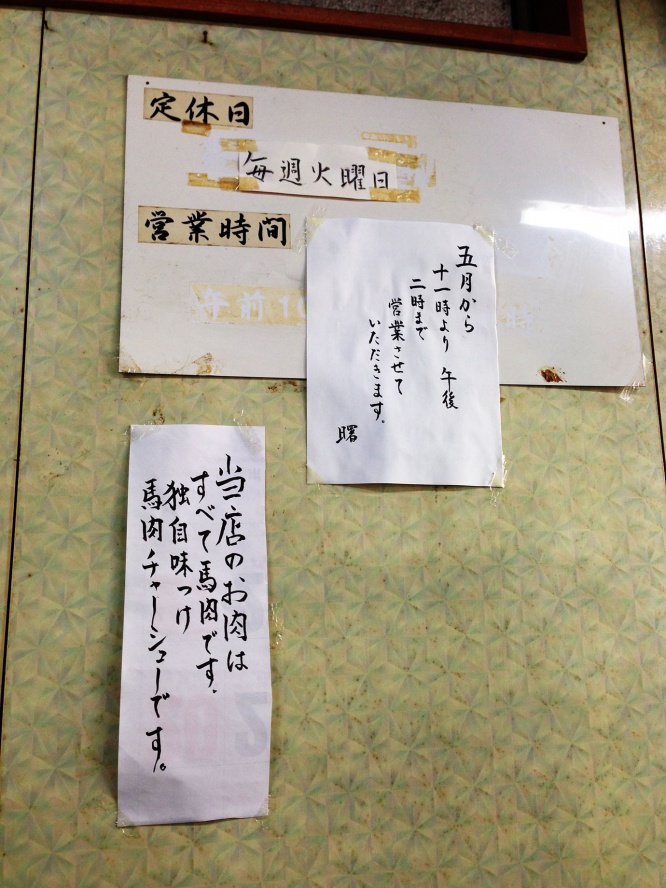 定休日
毎週火曜日
営業時間
午前10
五月から
十一時より 午後
二時まで
営業させて
いただきます.
曙
当店のお肉は
すべて馬肉です.
独自味つけ
馬肉チャーシューです。